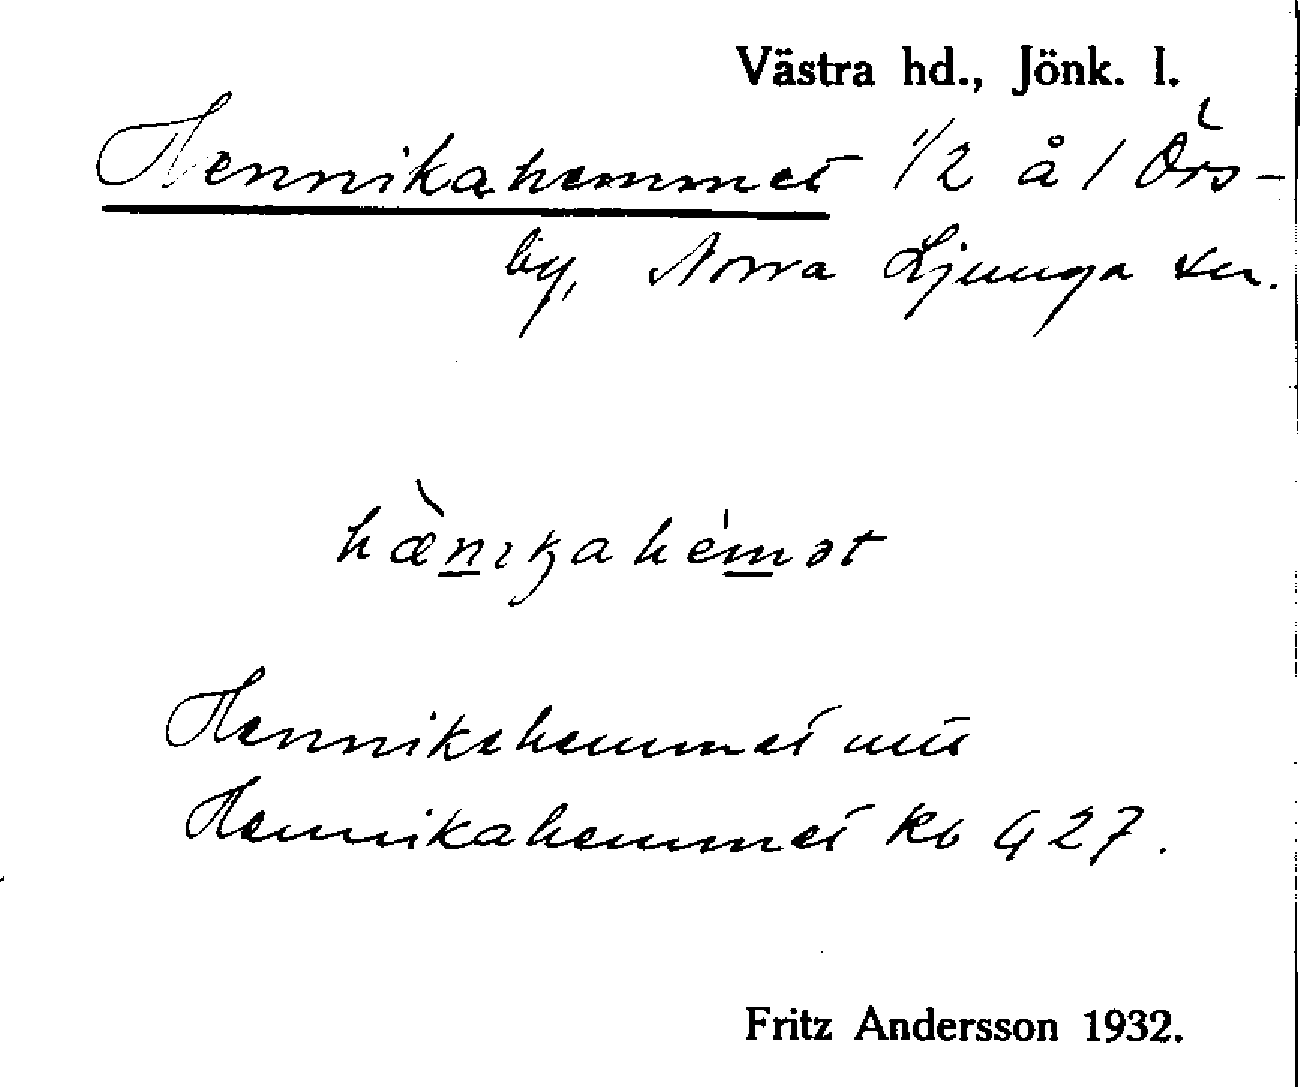 Västra hd., Jönk. l.
Hennikahemmet 1/2 å 1 Örs-
by, Norra Ljunga sn.
hæ̀nıkahémət
Hennikahemmet
Hennikahemmet Rb 427.
Fritz Andersson 1932.